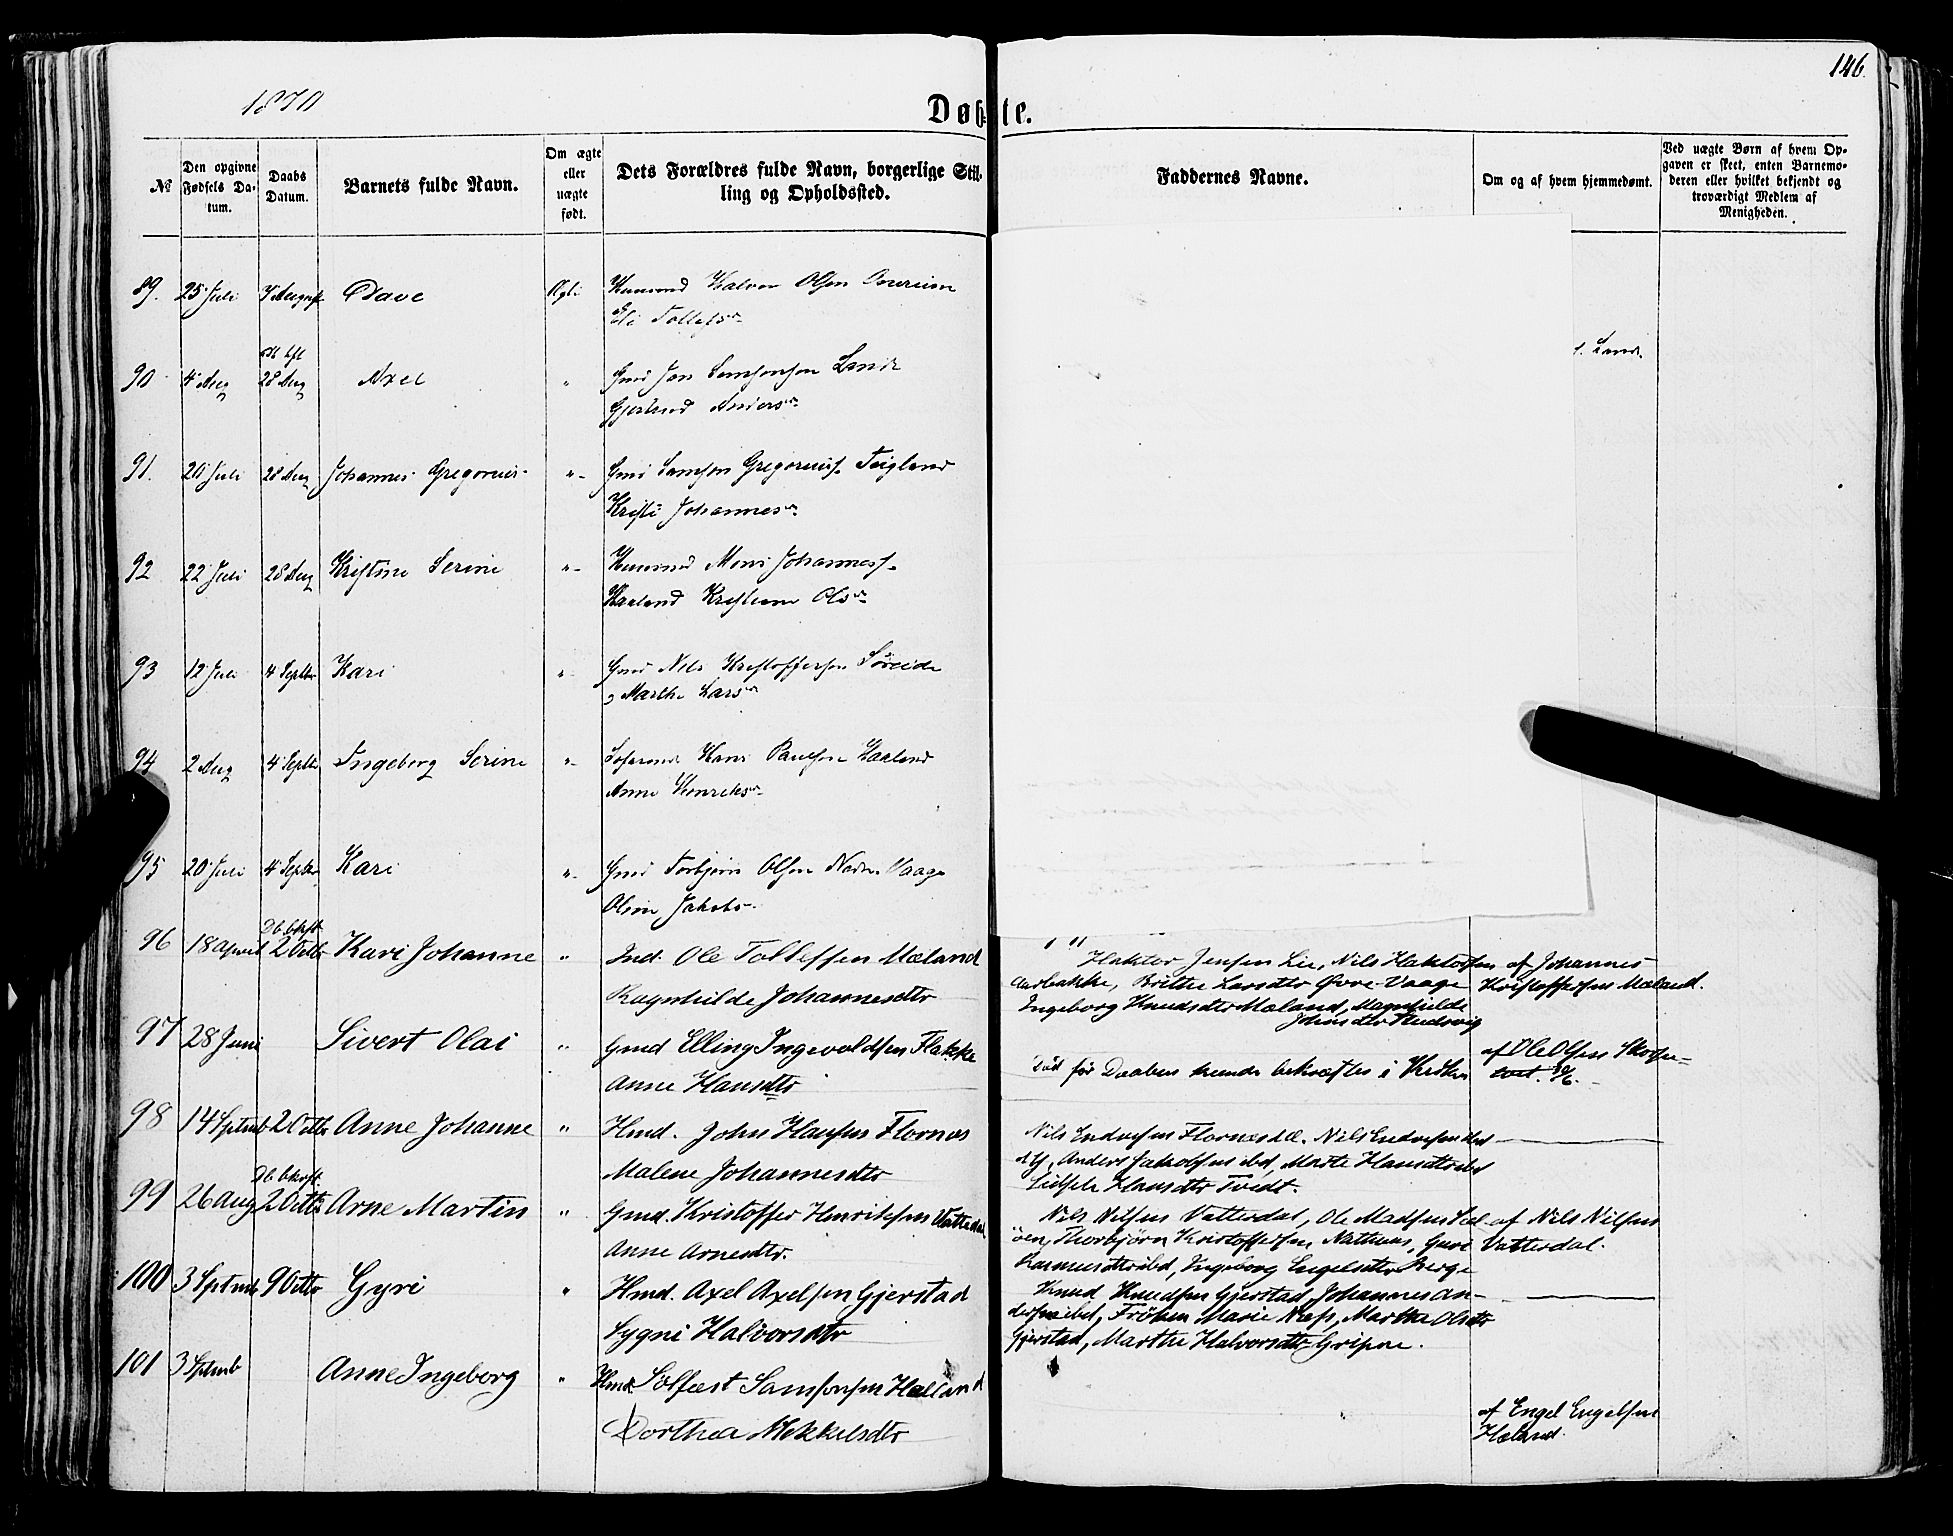 146.
1870
Døbte.
№
Den opgivne Fødsels Datum.
Daabs Datum.
Barnets fulde Navn.
Om ægte eller uægte født.
Dets Forældres fulde Navn, borgerlige Stilling og Opholdssted.
Faddernes Navne.
Om og af hvem hjemmedømt.
Ved uægte Børn af hvem Opgaven er skeet, enten Barnemoderen eller hvilket bekjendt og troværdigt Medlem af Menigheden.
89. 25 Juli 7 August Ægte Halvor Olsen
Eli Tollefs
90 4 Aug 28 Aug Axel " Gmd Jon Samsonsen Lande
Gjertrud Anders
91. 20 Juli 28 Aug Johannes Gregorius " Gmd Samson Gregorius. Teigland
Kristi Johannes
92 22 Juli 28 Aug Kristine Serine " Huusmd Mons Johanness.
Haaland Kristiane Ols
93 12 Juli 4 Septbr Kari " Gmd Nils Kristoffersen Søreide
Marthe Lars
94 2 Aug 4 Septbr Ingeborg Serine " Hans Paulsen Haaland
Anne Henriks
95 20 Juli 4 Septbr Kari " Gmd Torbjørn Olsen Nedre Vaage
Oline Jakobs
96 18 April Db. bekrft. 2 Octbr Kari Johanne " Ind. Ole Tollefsen Mæland
Ragnhilde Johannesdtr
Haktor Jensen Lie, Nils Haktorsen
Aarbakke, Brithe Larsdtr Øvre-Vaage
Ingeborg Knudsdtr Mæland, Magnhilde
Johnsdtr
af Johannes
Kristoffersen Mæland.
97 28 Juni Sivert Olai " Gmd Elling Ingevaldsen Flakke
Anne Hansdtr
Død før Daaben kunde bekræftes i Kirken
af Ole Olsen
98 14 Septmb 2 Octbr Anne Johanne " Hmd. John Hansen Flornes
Malene Johannesdtr
Nils Endresen Flornes Nils Endresen
Anders Jakobsen ibd, Marte Hansdtr ibd
Hansdtr Tvedt.
99 26 Aug Db. bekrft. 2 Octbr Arne Martin " Gmd. Kristoffer Henriksen Vatterdal
Anne Arnesdtr.
Nils Nilsen Vatterdal, Ole Madsen
Thorbjørn Kristoffersen Guri
Rasmusdtr ibd, Ingeborg Engelsdtr Berge
af Nils Nilsen
Vatterdal.
100 3 Septmb 9 Octbr Gyri " Hmd. Axel Axelsen Gjerstad
Sygni Halvorsdtr
Knud Knudsen Gjerstad, Johannes An-
dersen ibd, Frøken Marie Næss, Martha Olsdtr
Gjerstad, Marthe Halvorsdtr Gripne.
101 3 Septmb Anne Ingeborg " Hmd. Solfæst Samsonsen Hæland
Dorthea Mekkelsdtr
af Engel Engelsen
Hæland.